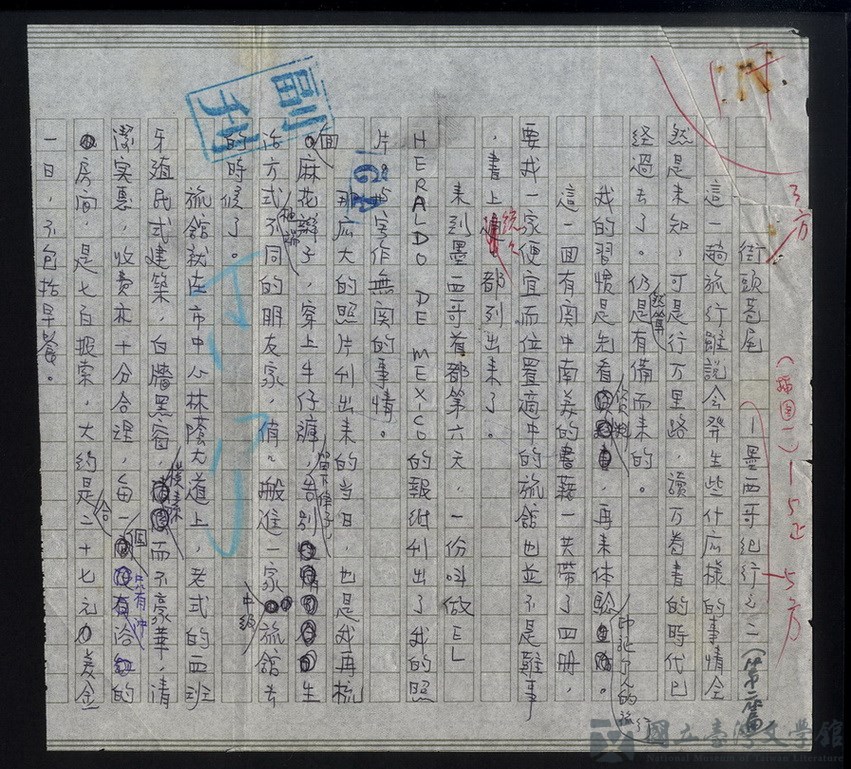 街頭巷尾 —墨西哥紀行之二(第二篇)
(插圖一)—15正
方
5方
這一趟旅行雖說會發生些什麼樣的事情全
然是未知,可是行万里路,讀万卷書的時代已
經過去了。仍然算是有備而來的。
我的習慣是先看資料,再來体驗印証個人的旅行。
這一回有關中南美的書籍一共帶了四册,
要找一家便宜而位置適中的旅館也並不是難事
,書上統統都列出來了。
來到墨西哥首都第六天,一份叫做EL
HERALDO DE MEXICO的報紙刊出了我的照
片與寫作無關的事情。
那麼大的照片刊出來的当日,也是我再梳
回麻花辮子,穿上牛仔褲,留下條子,告別生
活方式極端不同的朋友家,悄悄搬進一家中級旅館去
的時候了。
旅館就在市中心林蔭大道上,老式的西班
牙殖民式建築,白牆黑窗,樸素而不豪華,清
潔實惠,收費亦十分合理,每一個只有沖浴的
房間,是七百披索,大約合是二十七元美金
一日,不包括早餐。
副刊
國立臺灣文學館
National Museum of Taiwan Literature